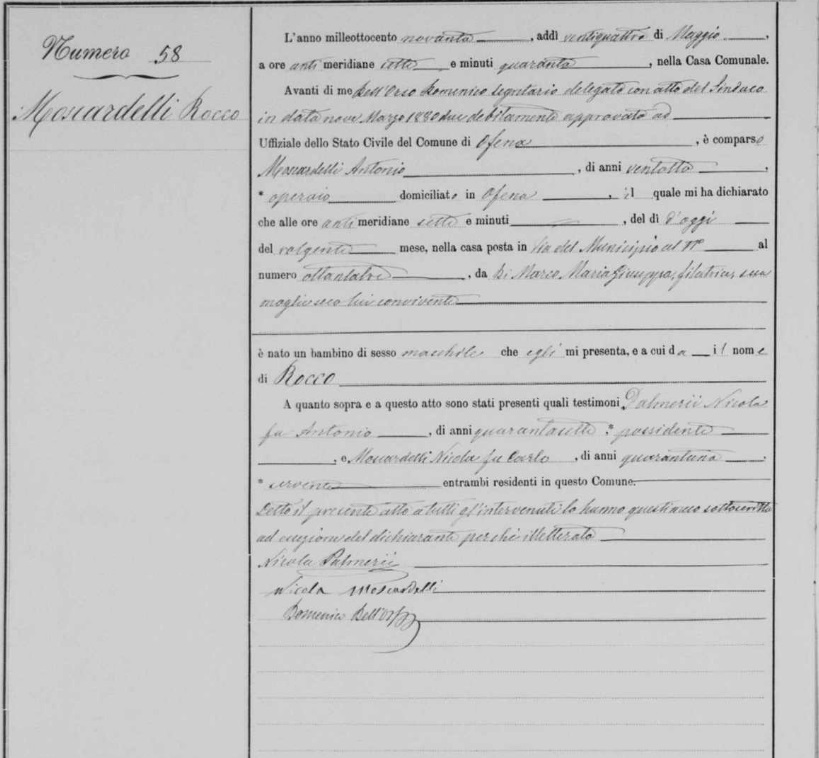 Numero 58
Moscardelli Rocco
L'anno milleottocento novanta, addì ventiquattro di Maggio,
a ore anti meridiane sette e minuti quaranta, nella Casa Comunale.
Avanti di me Dell'Orso Domenico segretario delegato con atto del Sindaco
in data nove Marzo 1880 debitamente approvato ad
Uffiziale dello Stato Civile del Comune di Ofena, è comparso
Moscardelli Antonio, di anni ventotto,
* operaio domiciliato in Ofena, il quale mi ha dichiarato
che alle ore anti meridiane sette e minuti, del dì d'oggi
del volgente mese, nella casa posta in Via del Municipio al N° al
numero, da Di Marco Maria Giuseppa, filatrice, sua
moglie seco lui convivente
è nato un bambino di sesso maschile che egli mi presenta, e a cui dà il nome
di Rocco
A quanto sopra e a questo atto sono stati presenti quali testimoni Palmerii Nicola
fu Antonio, di anni quarantasette * possidente
, e Moscardelli Nicola fu Carlo, di anni quarantuno
* servente entrambi residenti in questo Comune.
Letto il presente atto a tutti gl'intervenuti lo hanno sottoscritto
ad eccezione del dichiarante perchè illetterato
Nicola Palmerii
Nicola Moscardelli
Domenico Dell'Orso